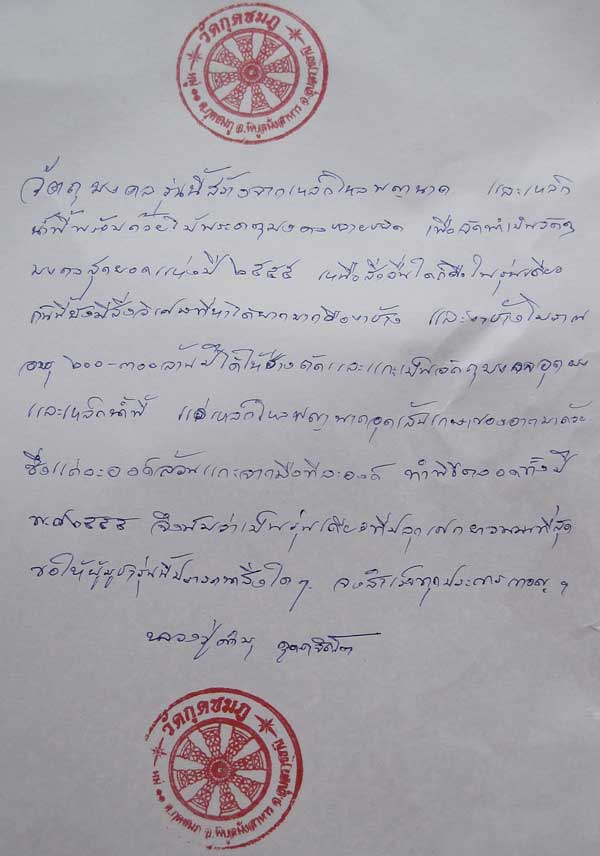 วัดกุดชมภู
หมู่ ๑๑ ต.กุดชมภู อ.พิบูลมังสาหาร จ.อุบลราชธานี
วัตถุมงคลรุ่นนี้สร้างจากเหล็กไหลพญานาค และเหล็ก
น้ำพี้พร้อมด้วย มงคลหลายชนิด เพื่อจัดทำเป็นวัตถุ
มงคลสุดยอดแห่งปี ๒๕๕๕ เหนือสิ่งอื่นใดก็คือในรุ่นเดียว
กันนี้ยังมีสิ่งวิเศษที่หาได้ยากมากคืองาช้าง และงาช้างโบราณ
อายุ ๒๐๐-๓๐๐ ล้านปีได้ให้ช่างตัดและแกะเป็นวัตถุมงคลอุดผง
และเหล็กน้ำพี้ แร่เหล็กไหลพญานาคอุดเส้นเกษาของอาตมาด้วย
ซึ่งแต่ละองค์ล้วนแกะจากมือทีละองค์ ทำพิธีตลอดทั้งปี
พ.ศ ๒๕๕๕ จึงนับว่าเป็นรุ่นเดียวที่ปลุกเสกยาวนานที่สุด
ขอให้ผู้บูชารุ่นนี้ปรารถนาสิ่งใดๆ จงสำเร็จทุกประการเทอญ ฯ
หลวงปู่คำบุ คุตฺตจิตฺโต
วัดกุดชมภู
หมู่ ๑๑ ต.กุดชมภู อ.พิบูลมังสาหาร จ.อุบลราชธานี